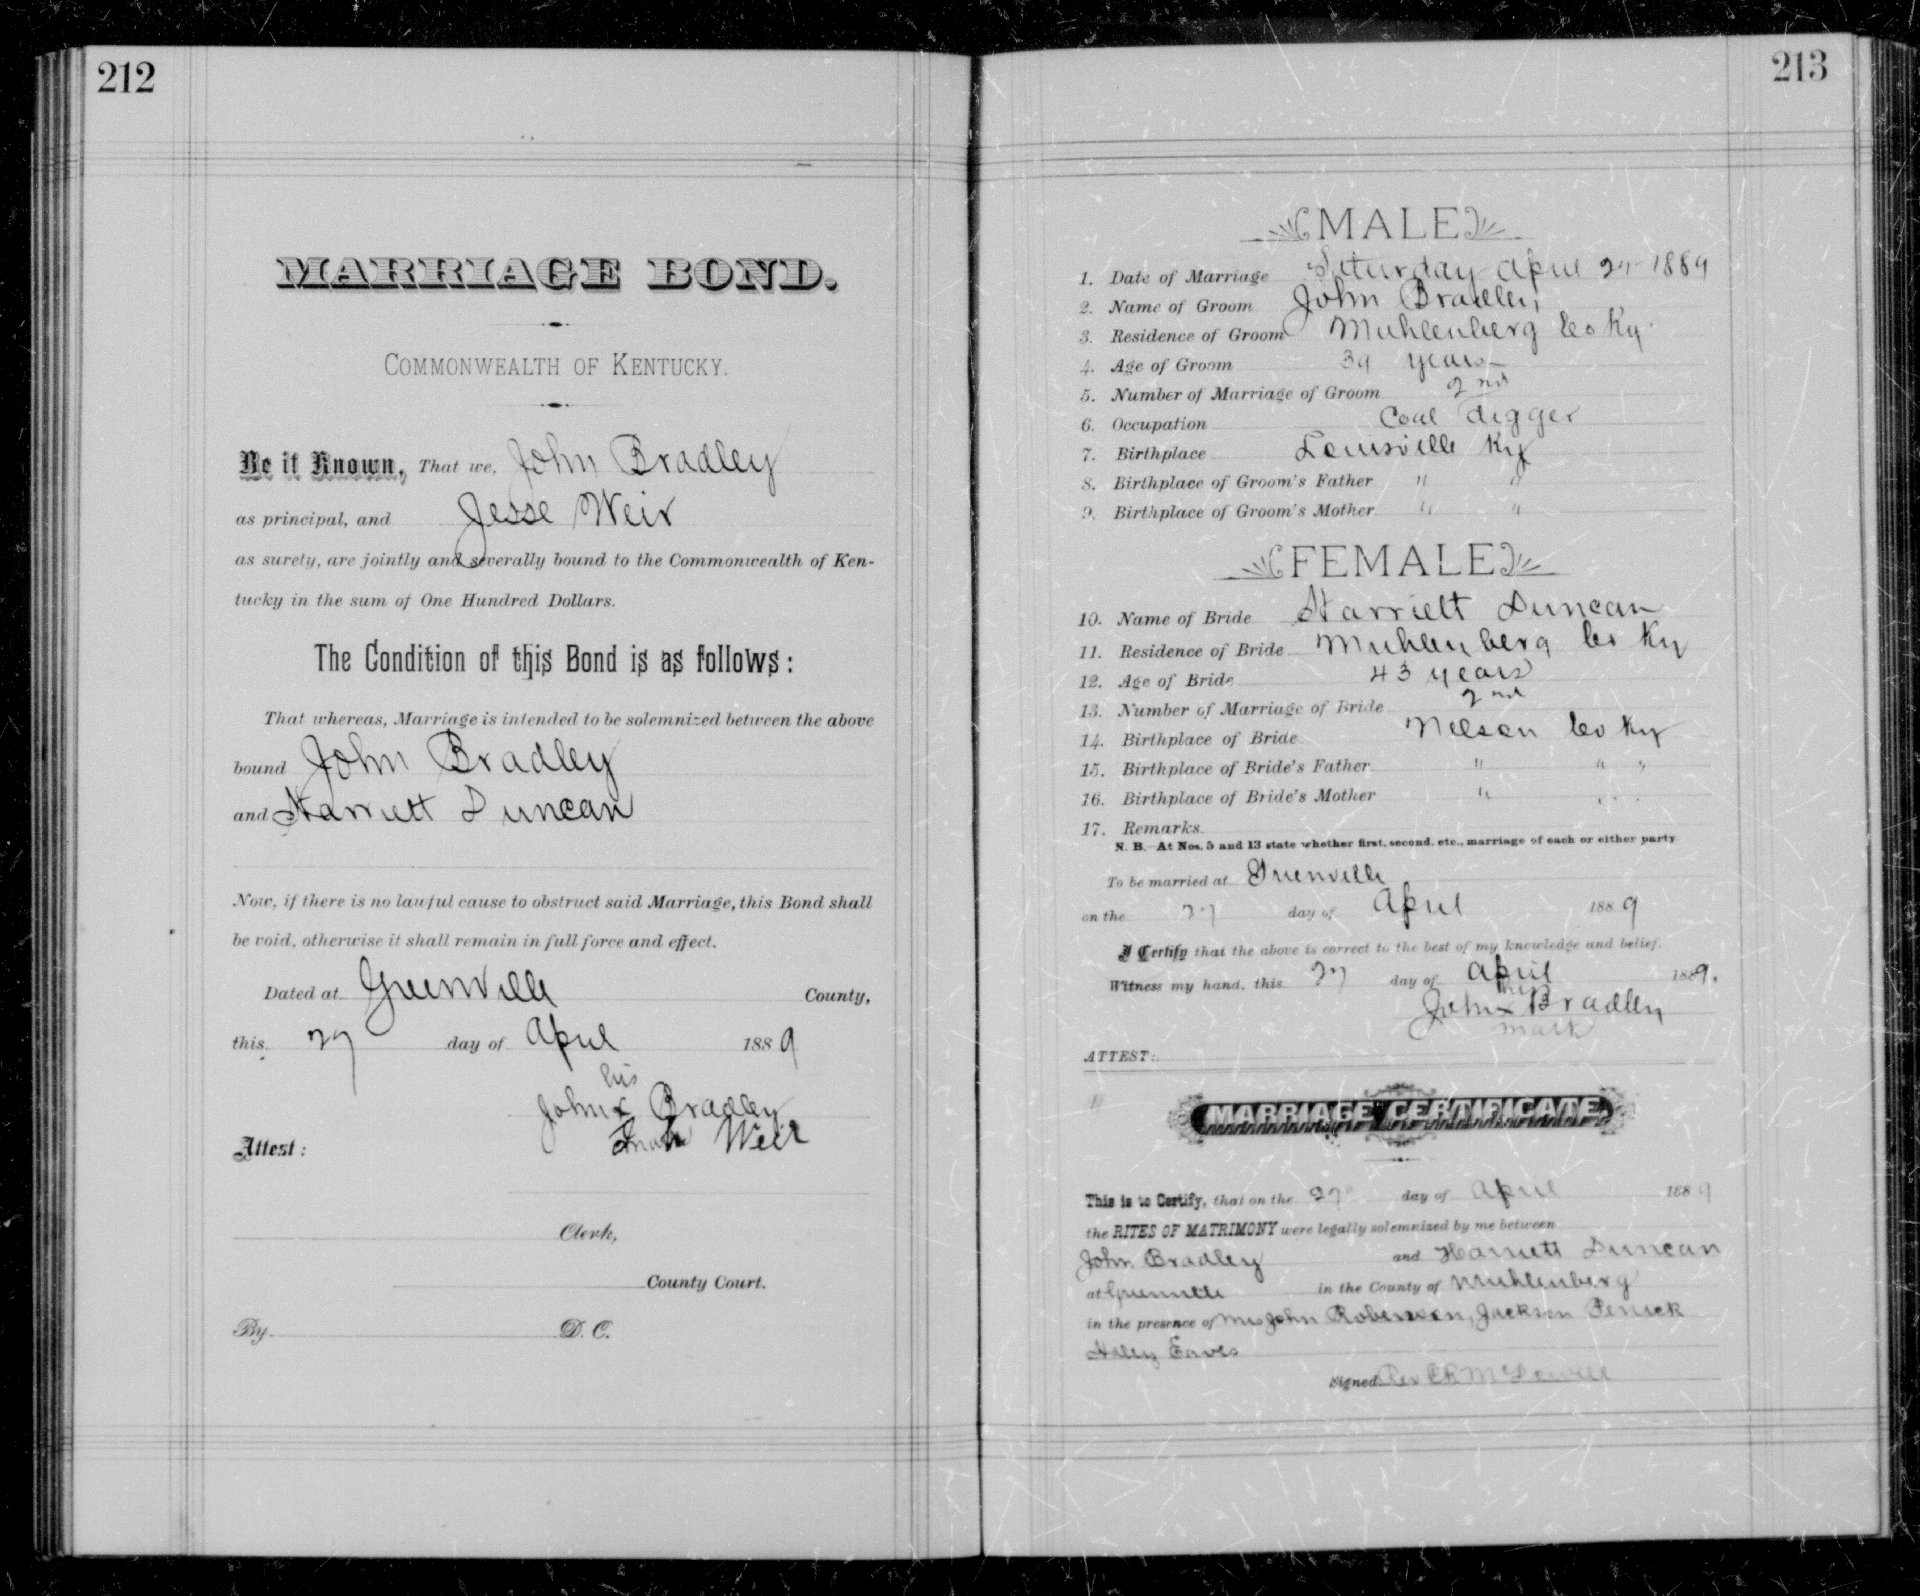 212
MARRIAGE BOND.
COMMONWEALTH OF KENTUCKY.
Be it Known, That we, John Bradley
as principal, and Jesse Weir
as surety, are jointly and severally bound to the Commonwealth of Ken-
tucky in the sum of One Hundred Dollars.
The Condition of this Bond is as follows:
That whereas, Marriage is intended to be solemnized between the above
bound John Bradley
and Harriett Duncan
Now, if there is no lawful cause to obstruct said Marriage, this Bond shall
be void, otherwise it shall remain in full force and effect.
Dated at Greenville County,
this 27 day of April 1889
his
John x Bradley
Weir
Attest:
Clerk,
County Court.
By D. C.
213
MALE
1. Date of Marriage Saturday April 27 1889
2. Name of Groom John Bradley
3. Residence of Groom Muhlenberg Co Ky
4. Age of Groom 39 years
5. Number of Marriage of Groom 2nd
6. Occupation Coal digger
7. Birthplace Louisville Ky
8. Birthplace of Groom's Father " "
9. Birthplace of Groom's Mother " "
FEMALE
10. Name of Bride Harriett Duncan
11. Residence of Bride Muhlenberg Co Ky
12. Age of Bride 43 years
13. Number of Marriage of Bride 2nd
14. Birthplace of Bride Nelson Co Ky
15. Birthplace of Bride's Father " " "
16. Birthplace of Bride's Mother " " "
17. Remarks
N. B. At Nos. 5 and 13 state whether first, second, etc., marriage of each or either party
To be married at Greenville
on the 27 day of April 1889
I Certify that the above is correct to the best of my knowledge and belief.
Witness my hand, this 27 day of April 1889.
his
John x Bradley
mark
ATTEST:
MARRIAGE CERTIFICATE.
This is to Certify, that on the 27 day of April 1889
the RITES OF MATRIMONY were legally solemnized by me between
John Bradley and Harriett Duncan
at Greenville in the County of Muhlenberg
in the presence of Mrs John Roberson, Jackson Penick
Haley Eaves
Signed Rev McDowell